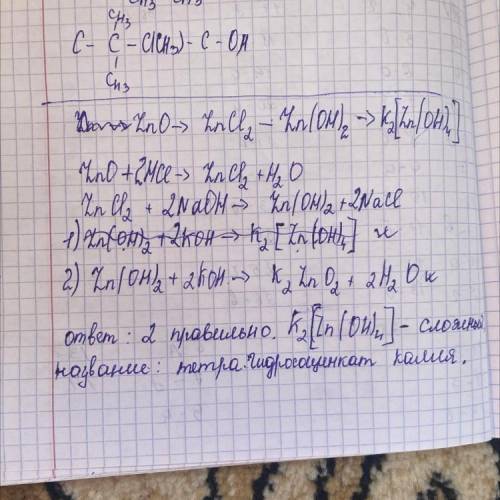 CH3 CH3
CH3
C - C - C(CH3) - C - OH
CH3
ZnO → ZnCl2 - Zn(OH)2 → K2[Zn(OH)4]
ZnO + 2HCl → ZnCl2 + H2O
ZnCl2 + 2NaOH → Zn(OH)2 + 2NaCl
1) Zn(OH)2 + 2KOH → K2[Zn(OH)4]
2) Zn(OH)2 + 2KOH → K2ZnO2 + 2H2O
ответ: 2 правильно. K2[Zn(OH)4] - сложный
название: тетрагидросоцинкат калия.